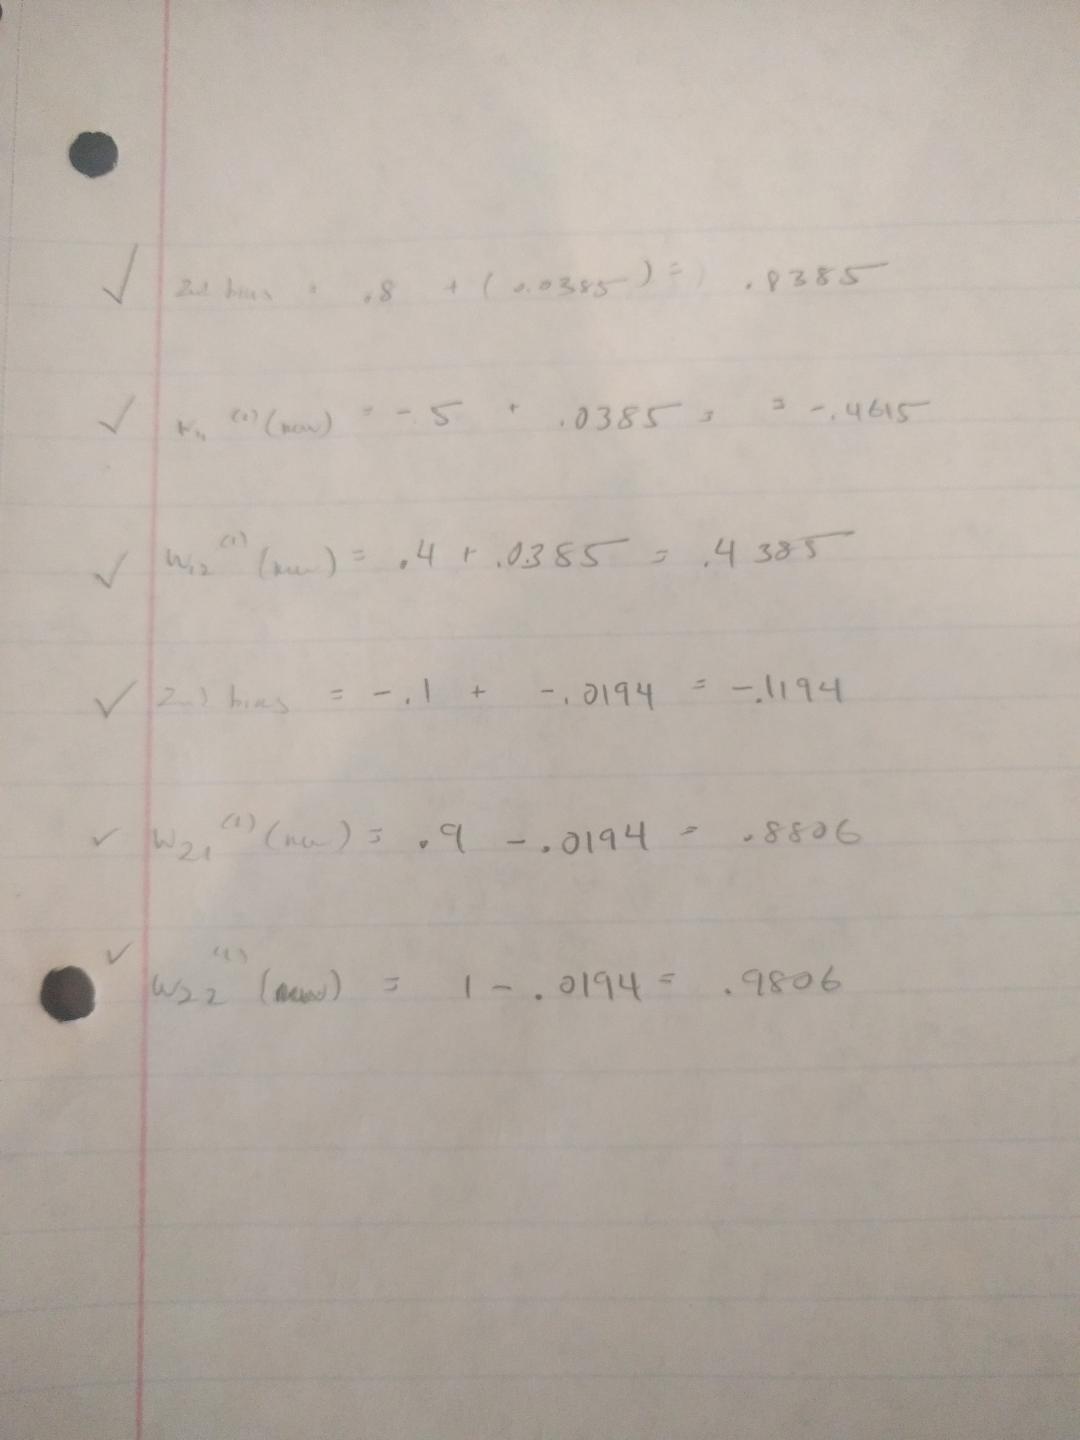 ✓ 2nd bias = .8 + (0.0385) = .8385
✓ W₁₁⁽¹⁾(new) = -.5 + .0385 = = -.4615
✓ W₁₂⁽¹⁾(new) = .4 + .0385 = .4385
✓ 2nd bias = -.1 + -.0194 = -.1194
✓ W₂₁⁽¹⁾(new) = .9 - .0194 = .8806
✓ W₂₂⁽¹⁾(new) = 1 - .0194 = .9806